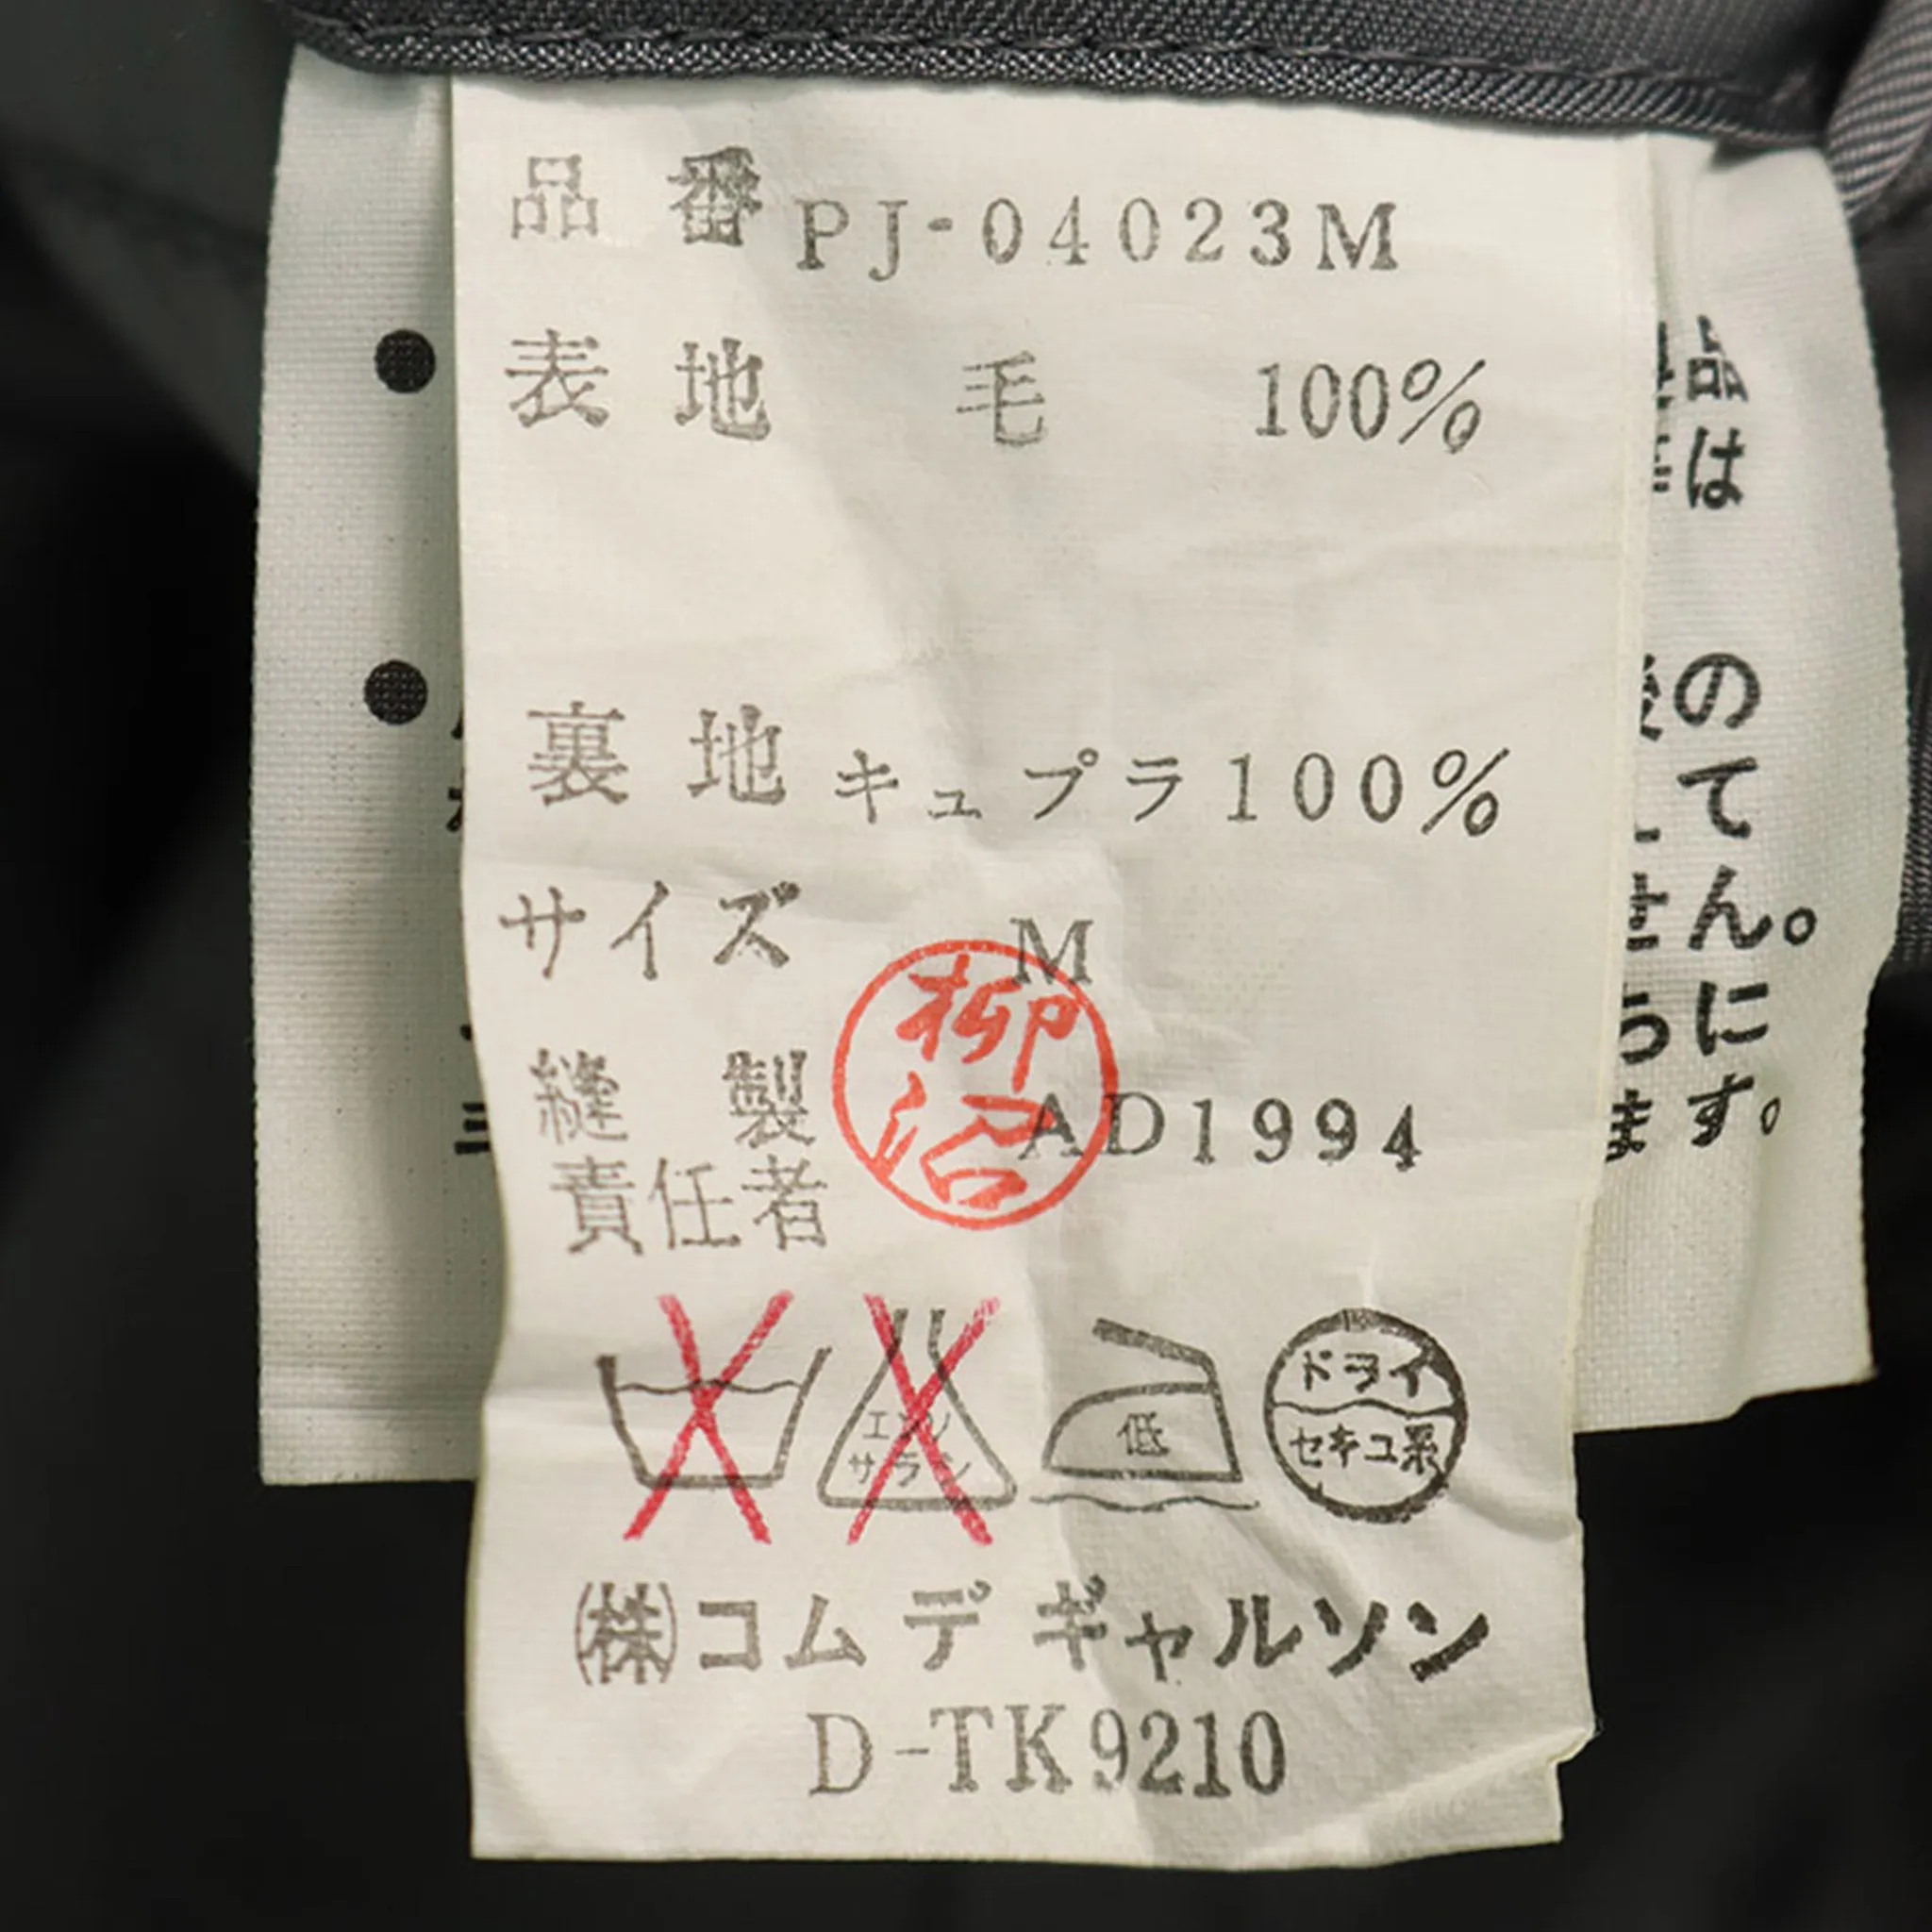 品番 PJ-04023M
表地 毛 100%
裏地 キュプラ100%
サイズ M
柳沼
縫製 AD1994
責任者
エンソ
サラシ
低
ドライ
セキユ系
㈱コム デ ギャルソン
D-TK9210
品は
のてん。にす。